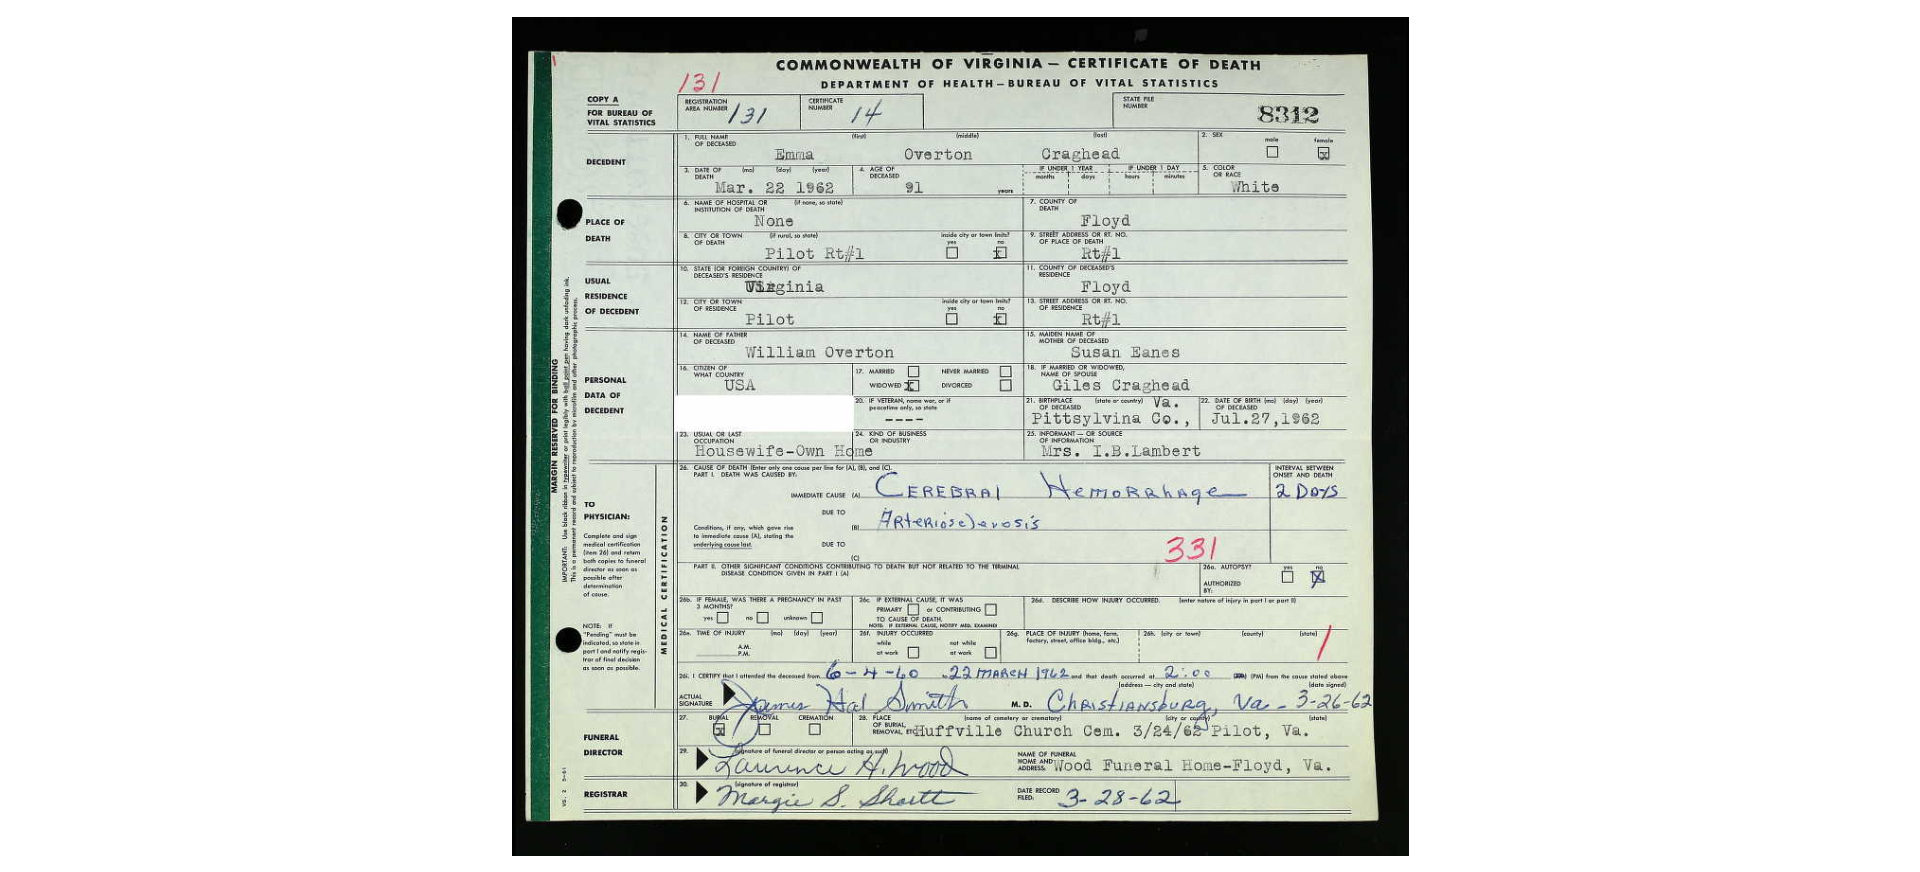 COMMONWEALTH OF VIRGINIA — CERTIFICATE OF DEATH
DEPARTMENT OF HEALTH—BUREAU OF VITAL STATISTICS
131
COPY A
FOR BUREAU OF
VITAL STATISTICS
REGISTRATION AREA NUMBER 131
CERTIFICATE NUMBER 14
STATE FILE NUMBER 8312
DECEDENT
1. FULL NAME OF DECEASED (first) (middle) (last)
Emma Overton Craghead
2. SEX male female
3. DATE OF DEATH (mo) (day) (year)
Mar. 22 1962
4. AGE OF DECEASED
91 years
IF UNDER 1 YEAR months days
IF UNDER 1 DAY hours minutes
5. COLOR OR RACE
White
PLACE OF DEATH
6. NAME OF HOSPITAL OR INSTITUTION OF DEATH (if none, so state)
None
7. COUNTY OF DEATH
Floyd
8. CITY OR TOWN OF DEATH (if rural, so state)
Pilot Rt#1
inside city or town limits? yes no
9. STREET ADDRESS OR RT. NO. OF PLACE OF DEATH
Rt#1
USUAL RESIDENCE OF DECEDENT
10. STATE (OR FOREIGN COUNTRY) OF DECEASED'S RESIDENCE
Virginia
11. COUNTY OF DECEASED'S RESIDENCE
Floyd
12. CITY OR TOWN OF RESIDENCE
Pilot
inside city or town limits? yes no
13. STREET ADDRESS OR RT. NO. OF RESIDENCE
Rt#1
PERSONAL DATA OF DECEDENT
14. NAME OF FATHER OF DECEASED
William Overton
15. MAIDEN NAME OF MOTHER OF DECEASED
Susan Eanes
16. CITIZEN OF WHAT COUNTRY
USA
17. MARRIED NEVER MARRIED
WIDOWED DIVORCED
18. IF MARRIED OR WIDOWED, NAME OF SPOUSE
Giles Craghead
20. IF VETERAN, name war, or if peacetime only, so state
----
21. BIRTHPLACE OF DECEASED (state or country) Va.
Pittsylvina Co.,
22. DATE OF BIRTH OF DECEASED (mo) (day) (year)
Jul.27,1962
23. USUAL OR LAST OCCUPATION
Housewife-Own Home
24. KIND OF BUSINESS OR INDUSTRY
25. INFORMANT — OR SOURCE OF INFORMATION
Mrs. I.B.Lambert
TO PHYSICIAN:
Complete and sign
medical certification
(item 26) and return
both copies to funeral
director as soon as
possible after
determination
of cause.
NOTE: IF
"Pending" must be
indicated, so state in
part I and notify regis-
trar of final decision
as soon as possible.
MEDICAL CERTIFICATION
26. CAUSE OF DEATH (Enter only one cause per line for (A), (B), and (C).
PART I. DEATH WAS CAUSED BY:
INTERVAL BETWEEN ONSET AND DEATH
IMMEDIATE CAUSE (A) CEREBRAL HEMORRHAGE 2 DAYS
DUE TO
(B) ARTERIOSclerosis
Conditions, if any, which gave rise
to immediate cause (A), stating the
underlying cause last.
DUE TO
(C)
331
PART II. OTHER SIGNIFICANT CONDITIONS CONTRIBUTING TO DEATH BUT NOT RELATED TO THE TERMINAL
DISEASE CONDITION GIVEN IN PART I (A)
26a. AUTOPSY? yes no
AUTHORIZED BY:
26b. IF FEMALE, WAS THERE A PREGNANCY IN PAST 3 MONTHS?
yes no unknown
26c. IF EXTERNAL CAUSE, IT WAS
PRIMARY or CONTRIBUTING
TO CAUSE OF DEATH.
NOTE: IF EXTERNAL CAUSE, NOTIFY MED. EXAMINER
26d. DESCRIBE HOW INJURY OCCURRED. (enter nature of injury in part I or part II)
26e. TIME OF INJURY (mo) (day) (year)
A.M.
P.M.
26f. INJURY OCCURRED
while at work not while at work
26g. PLACE OF INJURY (home, farm, factory, street, office bldg., etc.)
26h. (city or town) (county) (state)
26i. I CERTIFY that I attended the deceased from 6-4-60 to 22 MARCH 1962 and that death occurred at 2:00 (PM) from the cause stated above
(address — city and state) (date signed)
ACTUAL SIGNATURE James Hal Smith M. D. Christiansburg, Va - 3-26-62
FUNERAL DIRECTOR
27. BURIAL REMOVAL CREMATION
28. PLACE OF BURIAL, REMOVAL, ETC. (name of cemetery or crematory) (city or county) (state)
Huffville Church Cem. 3/24/62 Pilot, Va.
29. (signature of funeral director or person acting as such)
Laurence H. Wood
NAME OF FUNERAL HOME AND ADDRESS: Wood Funeral Home-Floyd, Va.
REGISTRAR
30. (signature of registrar)
Margie S. Shortt
DATE RECORD FILED: 3-28-62
MARGIN RESERVED FOR BINDING
IMPORTANT: Use black ribbon in typewriter or print legibly with ball point pen having dark unfading ink.
This is a permanent record and subject to reproduction by microfilm and other photographic process.